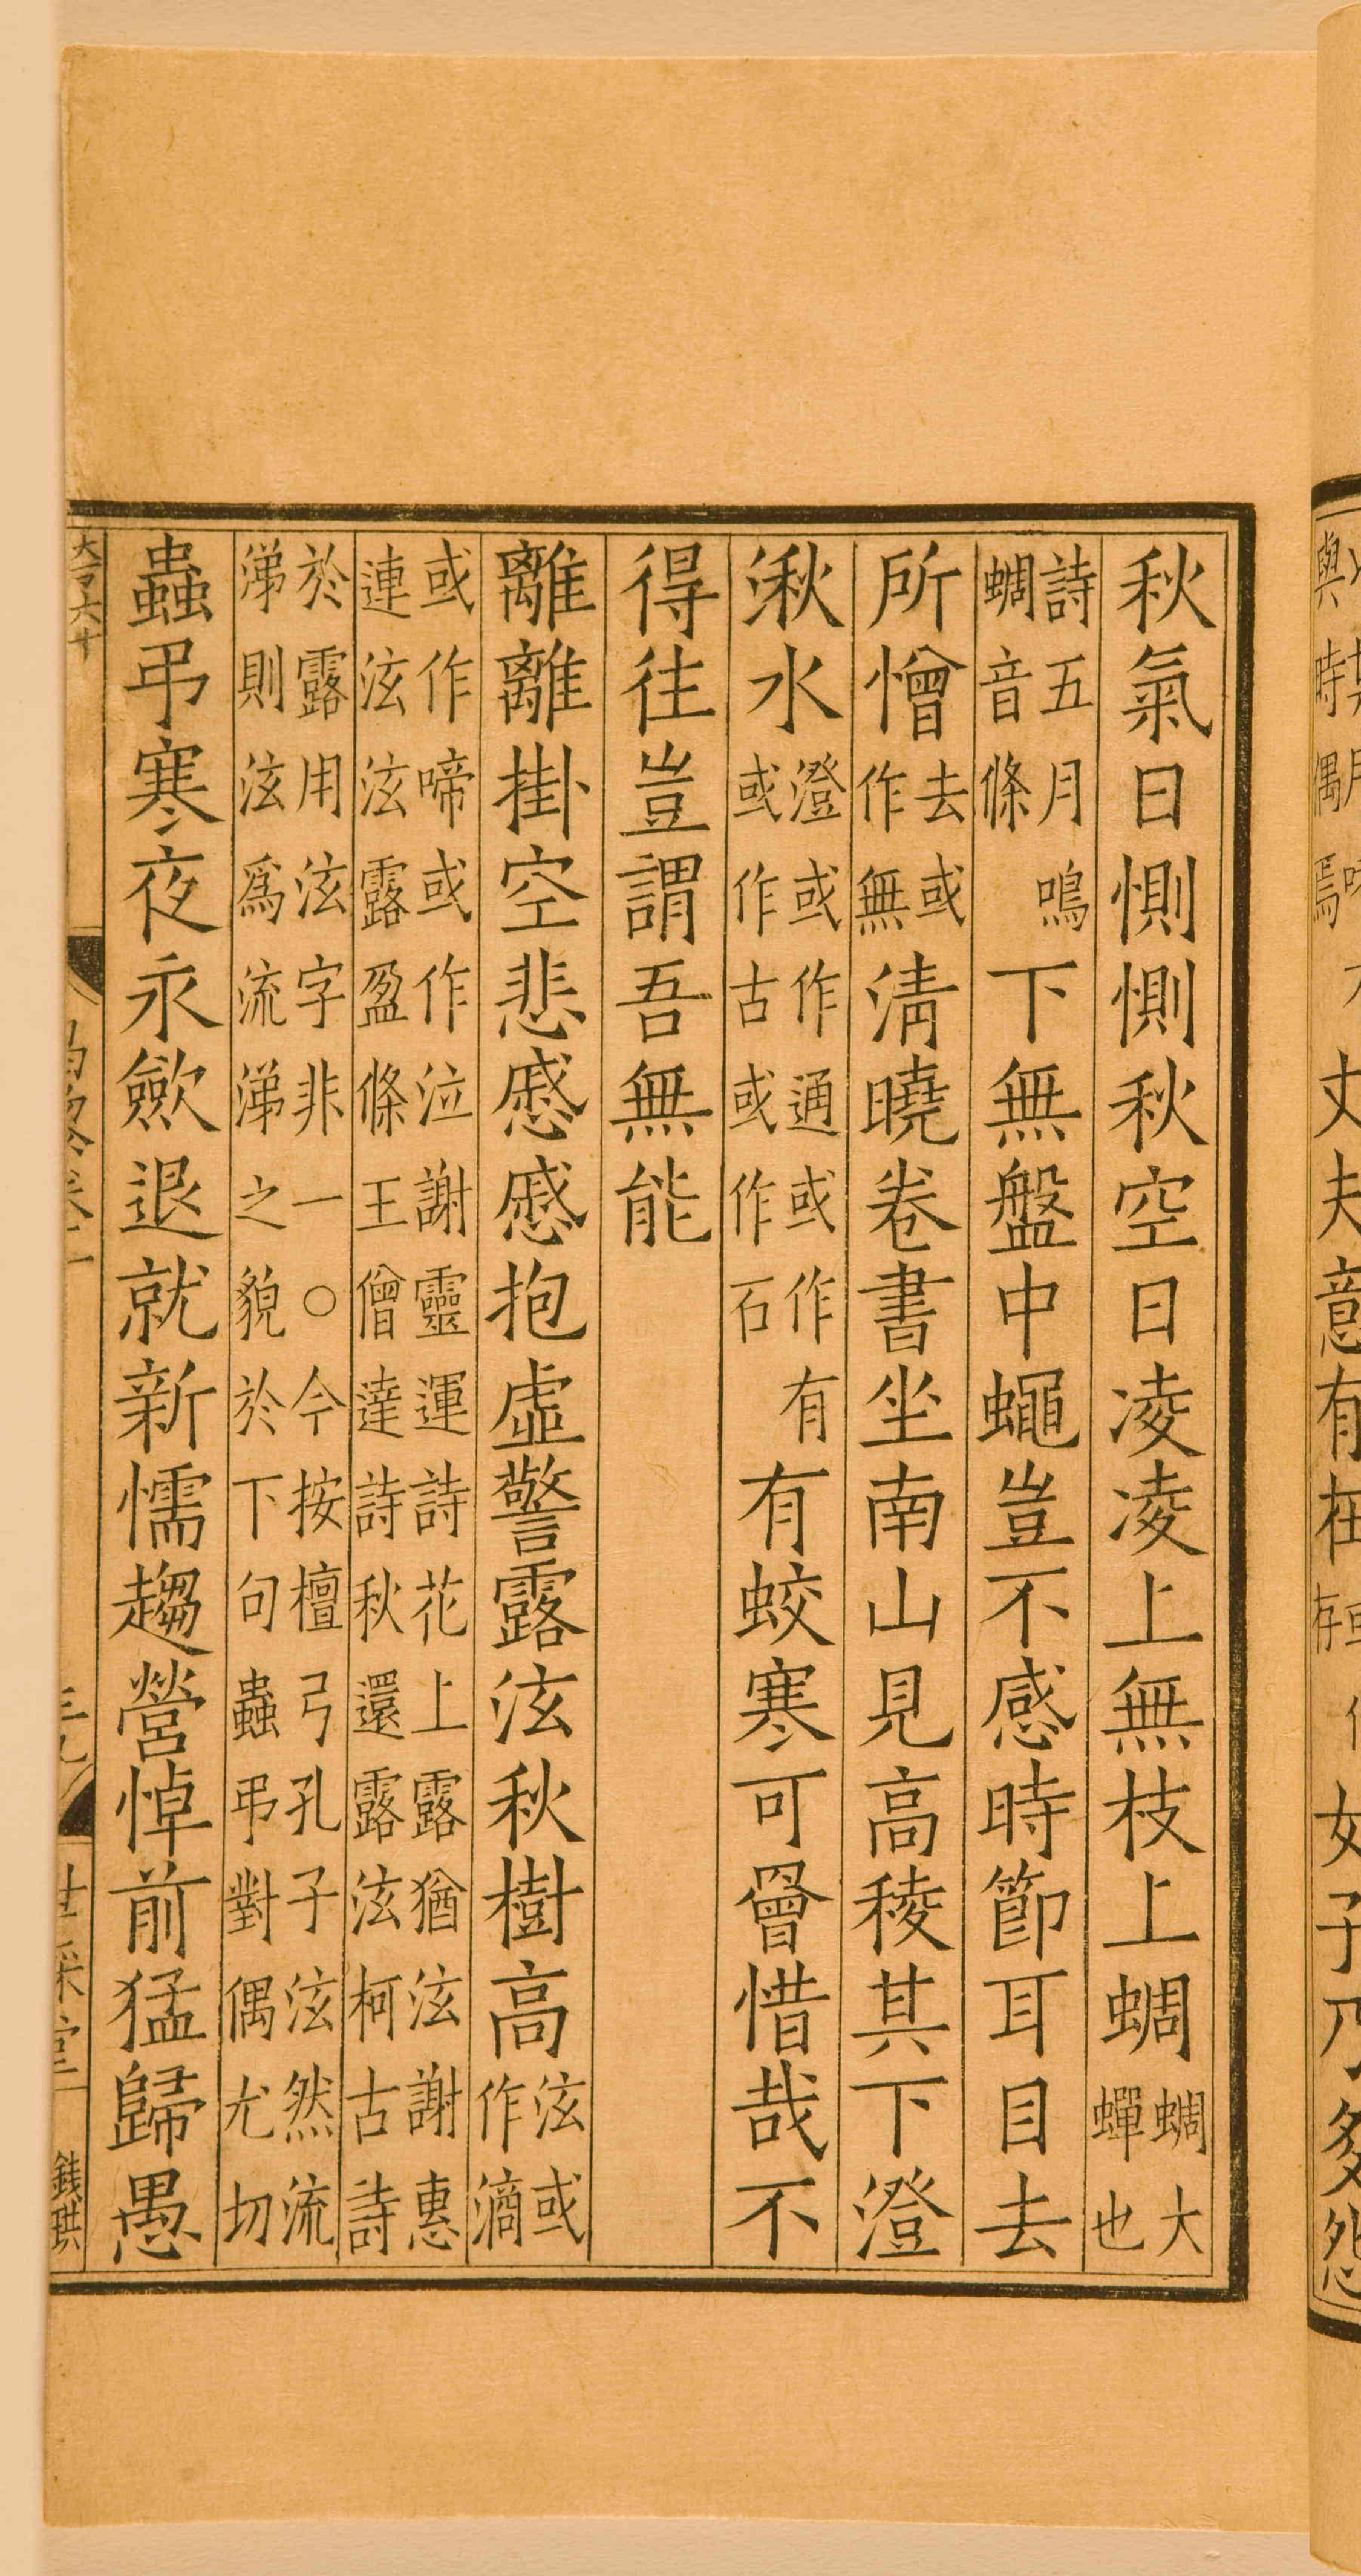 秋氣日惻惻秋空日凌凌上無枝上蜩蜩大蟬也
詩五月鳴蜩音條下無盤中蠅豈不感時節耳目去
所憎去或作無清曉卷書坐南山見高稜其下澄
湫水澄或作通或作有或作古或作石有蛟寒可罾惜哉不
得往豈謂吾無能
離離掛空悲慼慼抱虛警露泫秋樹高泫或作滴
或作啼或作泣謝靈運詩花上露猶泫謝惠連泫泫露盈條王僧達詩秋還露泫柯古詩
於露用泫字非一○今按檀弓孔子泫然流涕則泫爲流涕之貌於下句蟲弔對偶尤切
蟲弔寒夜永歛退就新懦趨營悼前猛歸愚
錢珙